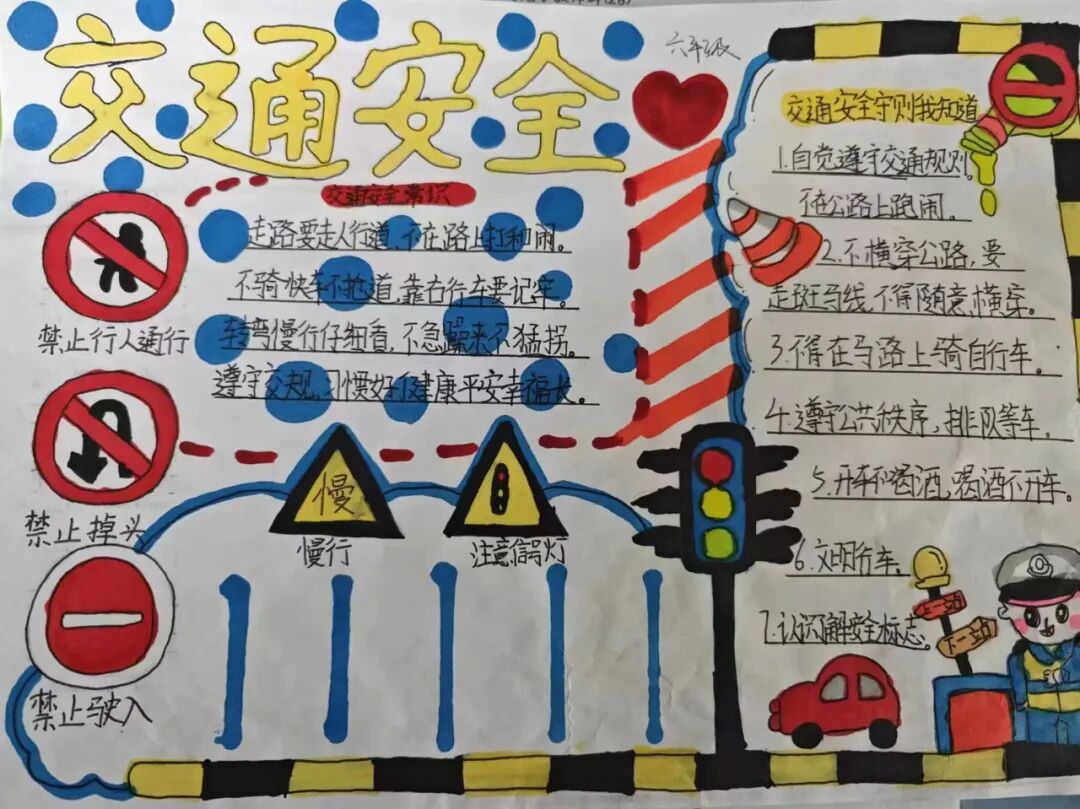 交通安全
六年级
交通安全常识
走路要走人行道,不在路上打和闹。
不骑快车不抢道,靠右行车要记牢。
转弯慢行仔细看,不急躁来不猛拐。
遵守交规,习惯好健康平安幸福长。
禁止行人通行
禁止掉头
禁止驶入
慢
慢行
注意信号灯
交通安全守则我知道
1.自觉遵守交通规则。
不在公路上跑闹。
2.不横穿公路,要
走斑马线,不得随意横穿。
3.不得在马路上骑自行车。
4.遵守公共秩序,排队等车。
5.开车不喝酒,喝酒不开车。
6.文明行车。
7.认识了解安全标志。
上一站
下一站